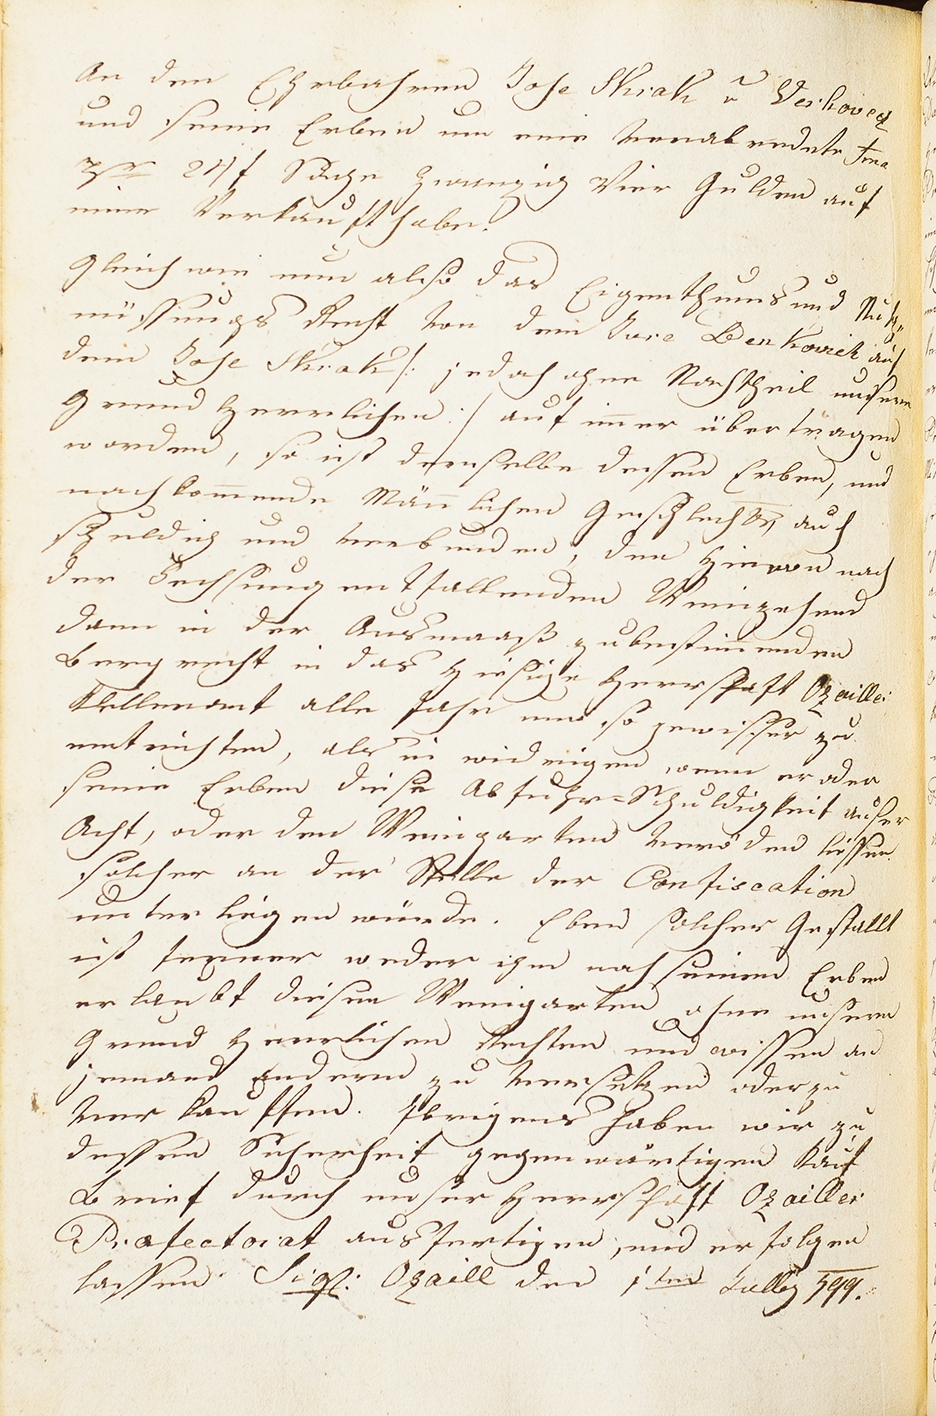 An den Ehrbahren Jose Skrak v Verhovecz
und seine Erben um eine verabredete Sma
pr 24 f Sage zwanzig Vier Gulden auf
immer Verkauft habe.
Gleich wie nun also das Eigenthums und Nutz-
nüssungs Recht von dem Jure Benkovich auf
dem Jose Skrak /: jedoch ohne Nachtheil unserer
Grund Herrlichen :/ auf immer übertragen
worden, so ist derselbe dessen Erben, und
nachkommende Mänlichen Geschlechts, auch
schuldig und verbunden, den Hievon nach
der Fechsung entfallenden Weinzehend
dann in der Ausmaaß zubestimenden
Bergrecht in das Hiesige Herrschaft Ozailler
Kelleramt alle Jahr um so gewisser zu
entrichten, als in widrigen, wenn er oder
seine Erben diese Abfuhr-Schuldigkeit ausser
Acht, oder den Weingarten veröden liessen
solcher an der Stelle der Confiscation
unterliegen würde. Eben solcher Gestallt
ist ferner weder ihm noch seinen Erben
erlaubt diesen Weingarten ohne unseren
Grund Herrlichen Rechten und wissen an
jemand andern zu versetzen oder zu
verkauffen. Übrigens haben wir zu
dessen Sicherheit gegenwärtigen Kauf
Brief durch unser Herrschaft Ozailler
Præfectorat ausfertigen, und erfolgen
lassen. Sigl: Ozaill den 1ten Jully 799.